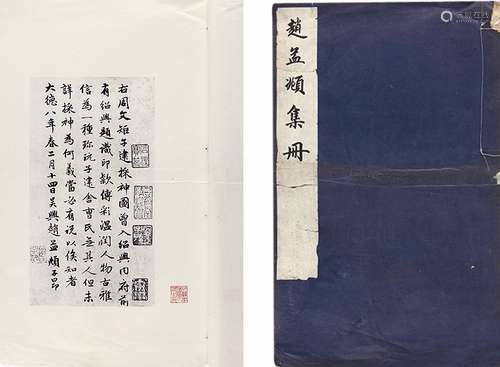 右周文矩子建採神圖曾入紹興內府前
有紹興題識印款傅彩溫潤人物古雅
信為一種珎玩子建舍曹氏無其人但未
詳採神為何義當必有說以俟知者
大德八年春二月十四吳興趙孟頫子昂
趙孟頫集冊